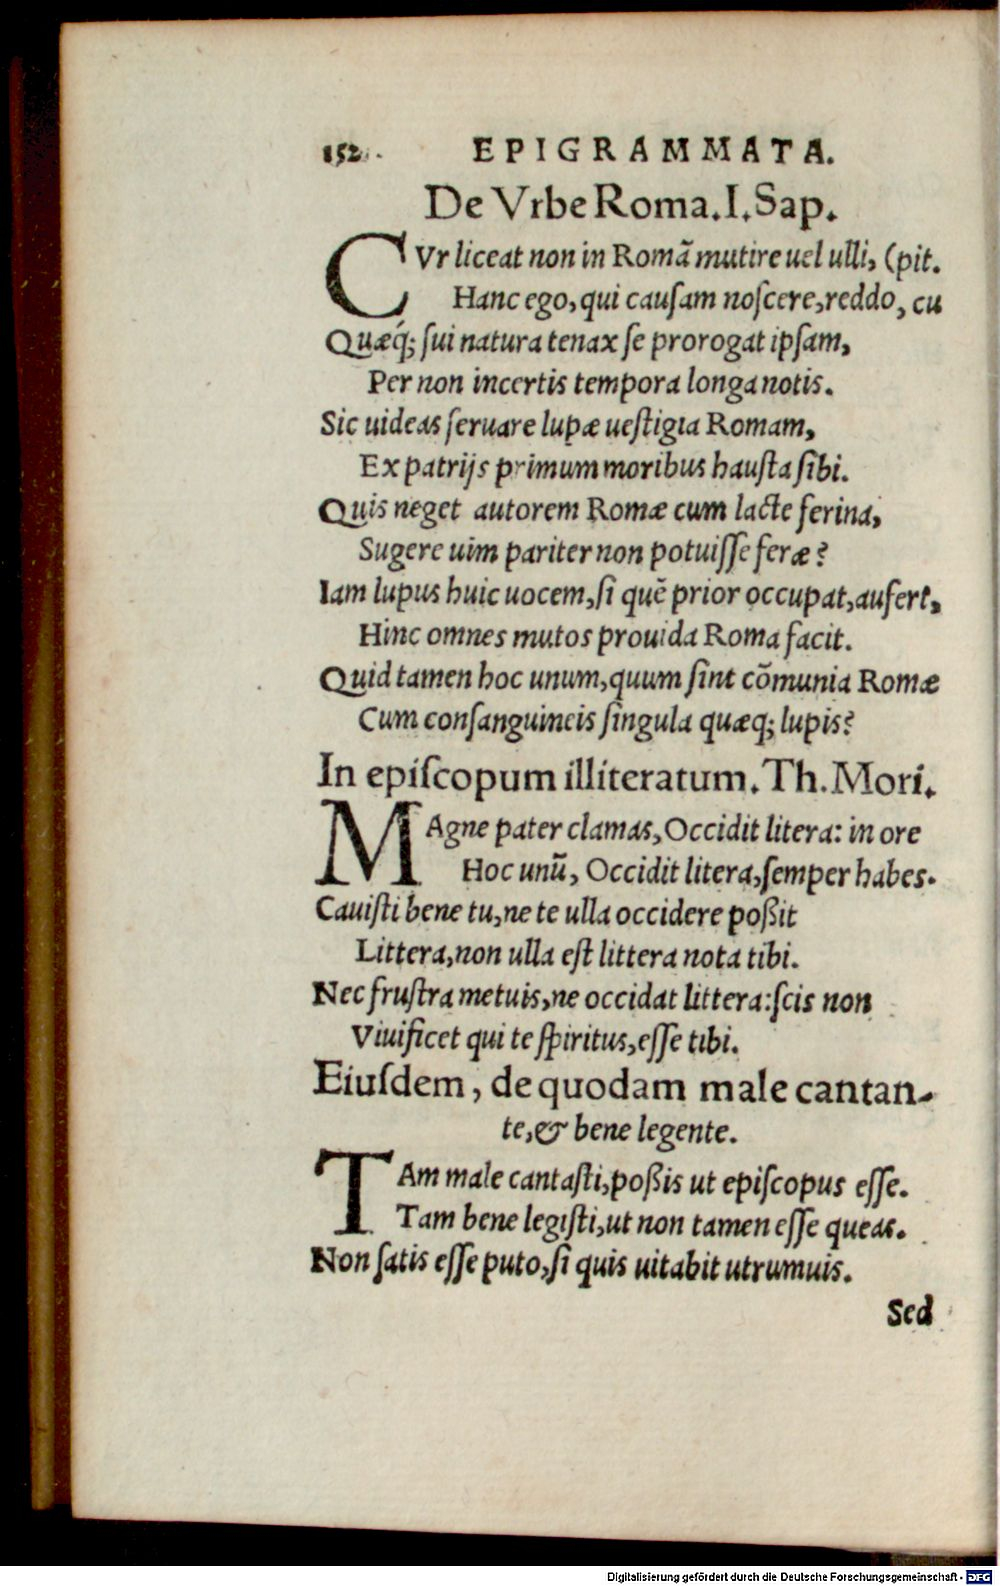 152.
EPIGRAMMATA.
De Vrbe Roma. I. Sap.
CVr liceat non in Romã mutire uel ulli, (pit.
Hanc ego, qui cauſam noſcere, reddo, cu
Quæq́; ſui natura tenax ſe prorogat ipſam,
Per non incertis tempora longa notis.
Sic uideas ſeruare lupæ ueſtigia Romam,
Ex patrijs primum moribus hauſta ſibi.
Quis neget autorem Romæ cum lacte ferina,
Sugere uim pariter non potuiſſe feræ?
Iam lupus huic uocem, ſi quẽ prior occupat, aufert,
Hinc omnes mutos prouida Roma facit.
Quid tamen hoc unum, quum ſint cõmunia Romæ
Cum conſanguineis ſingula quæq; lupis?
In epiſcopum illiteratum. Th. Mori.
MAgne pater clamas, Occidit litera: in ore
Hoc unũ, Occidit litera, ſemper habes.
Cauiſti bene tu, ne te ulla occidere poßit
Littera, non ulla eſt littera nota tibi.
Nec fruſtra metuis, ne occidat littera: ſcis non
Viuificet qui te ſpiritus, eſſe tibi.
Eiuſdem, de quodam male cantan-
te, & bene legente.
TAm male cantaſti, poßis ut epiſcopus eſſe.
Tam bene legiſti, ut non tamen eſſe queas.
Non ſatis eſſe puto, ſi quis uitabit utrumuis.
Sed
Digitalisierung gefördert durch die Deutsche Forschungsgemeinschaft - DFG